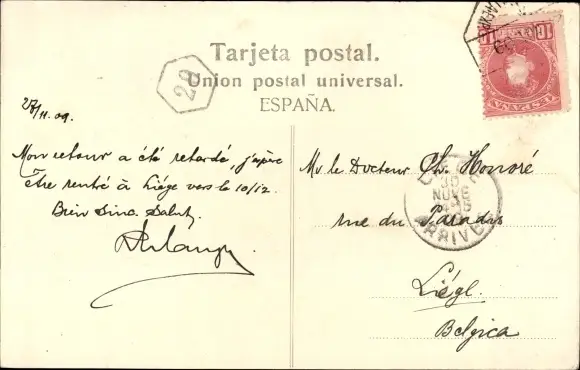 Tarjeta postal.
Union postal universal.
ESPAÑA.
28
27/11.09.
Mon retour a été retardé, j'espère
être rentré à Liége vers le 10/12
Bien Sinc. Saluts.
Mr. le Docteur Ch. Honoré
rue du Paradis
Liége.
Belgica
30
NOVE
ARRIVEE